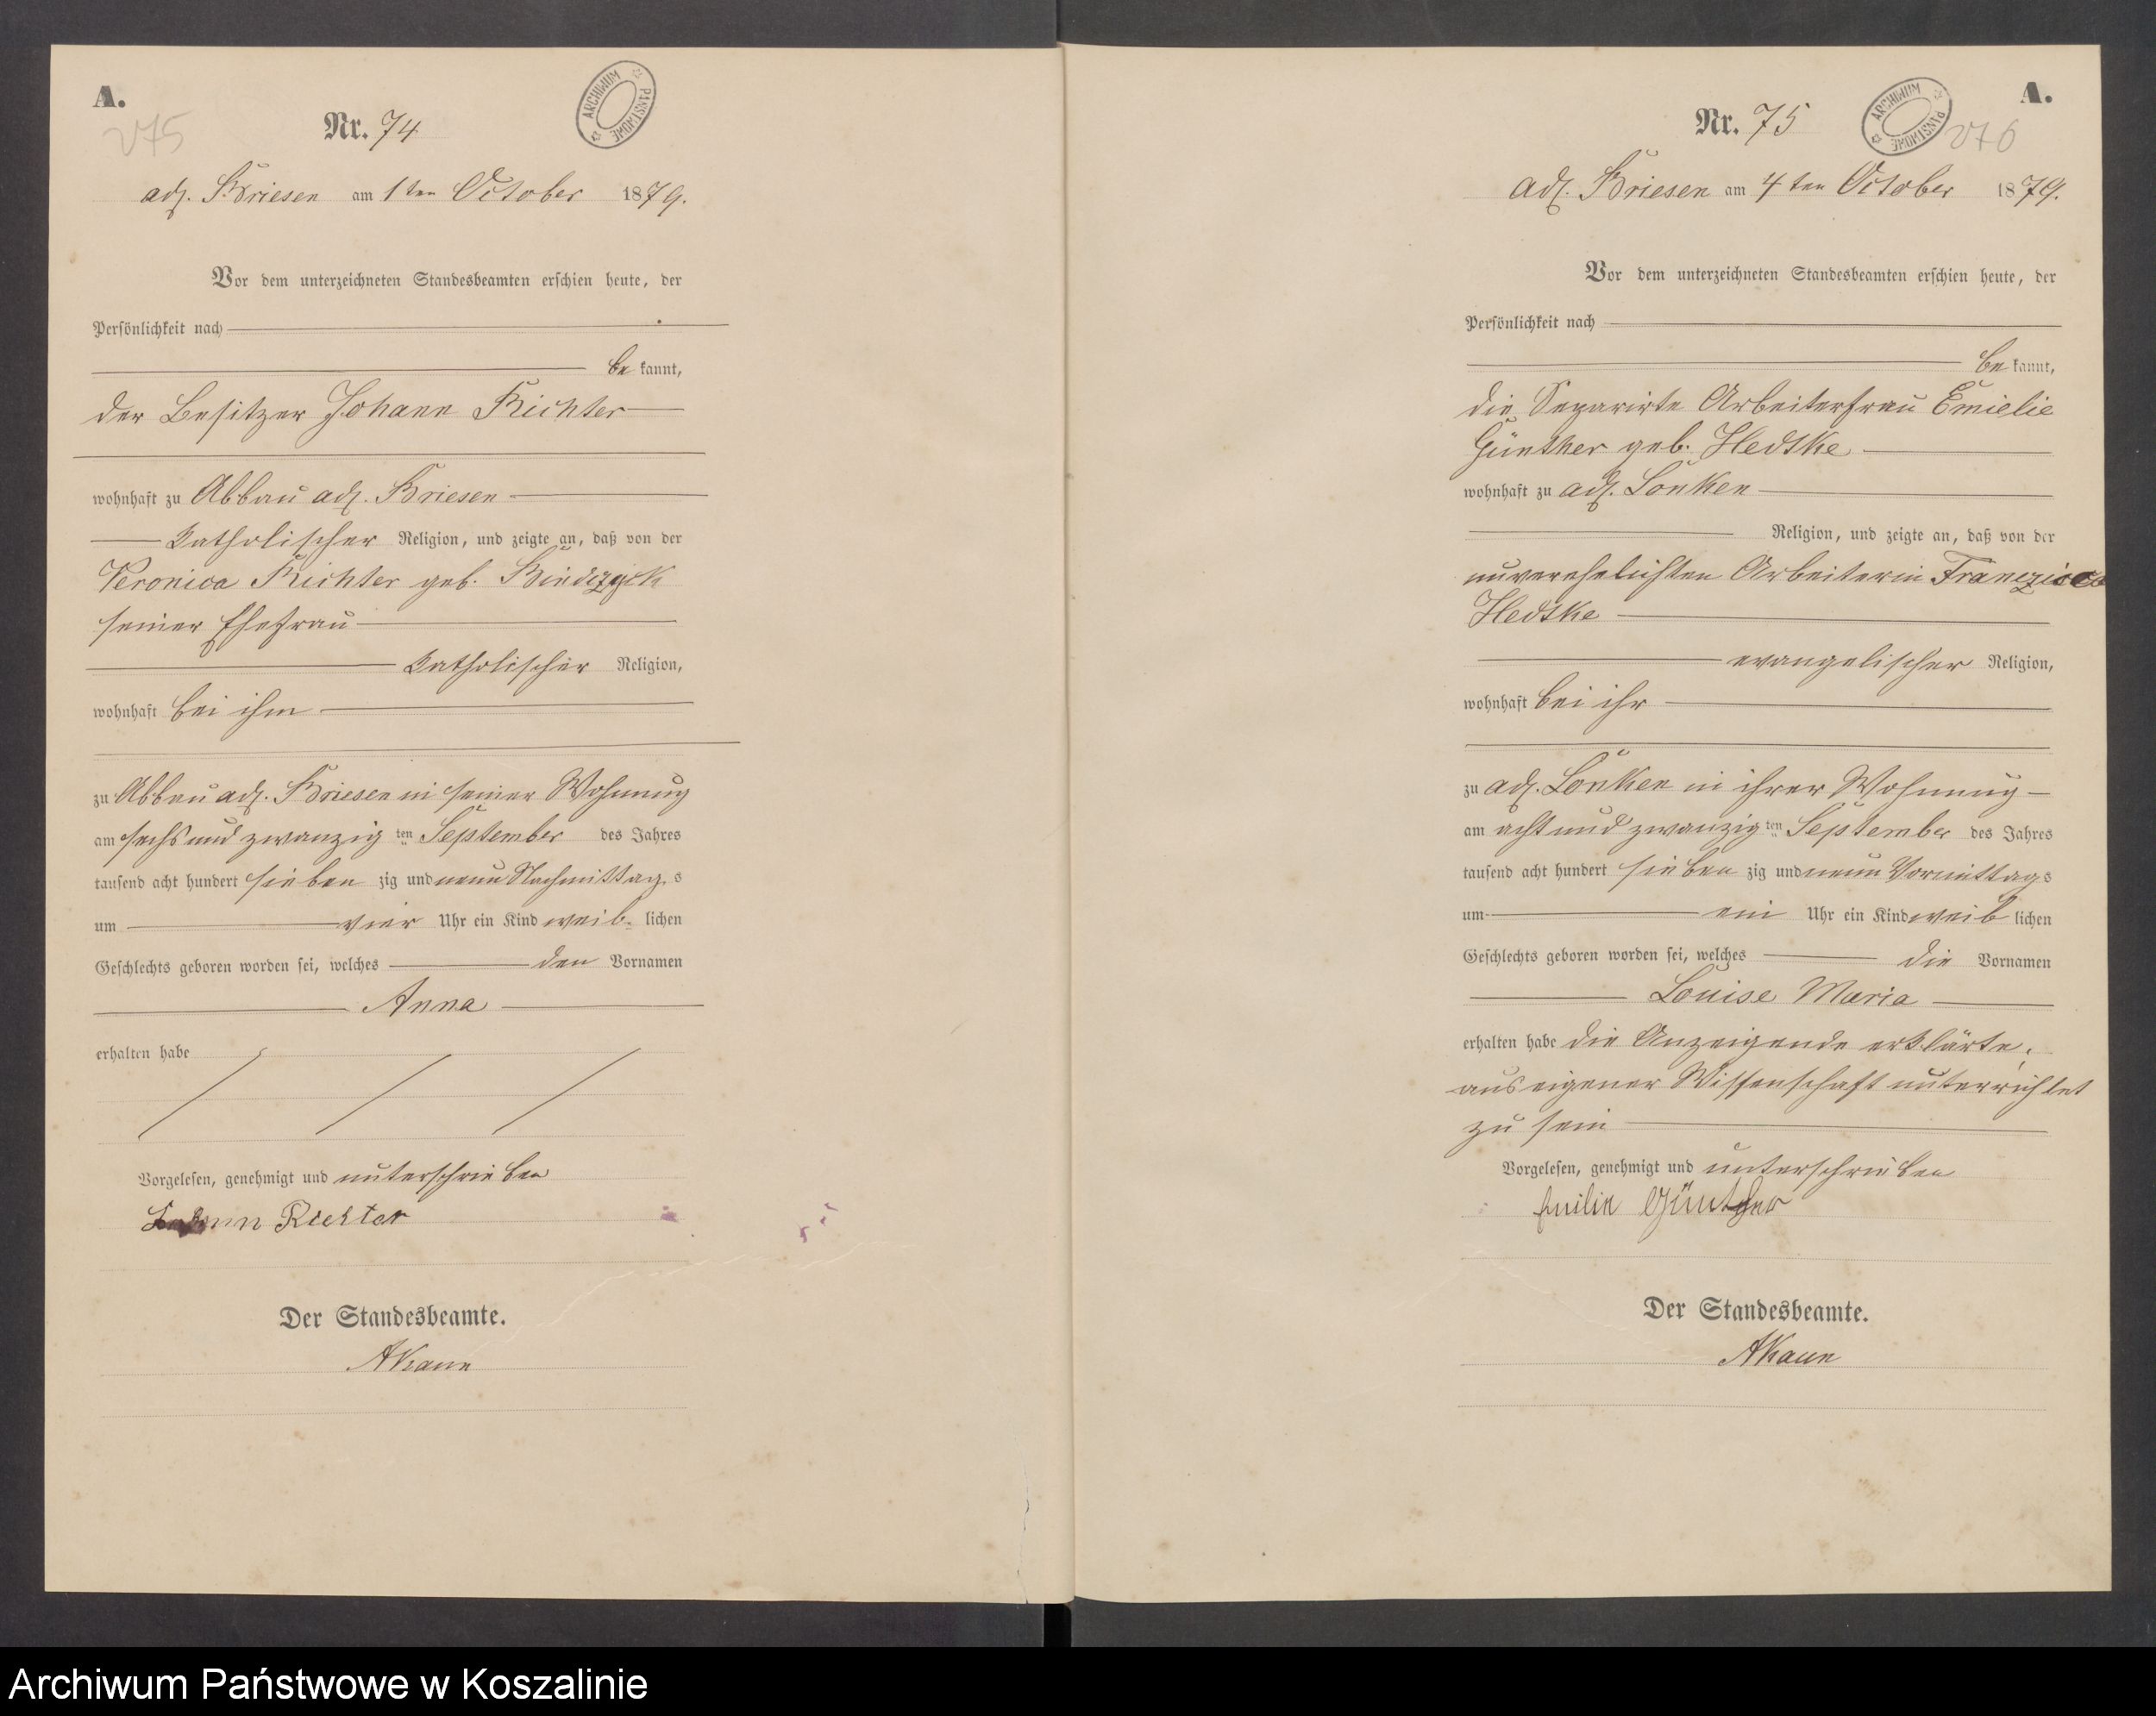 A.
275
Nr. 74
ARCHIWUM PAŃSTWOWE
adl. Briesen am 1ten October 1879.
Vor dem unterzeichneten Standesbeamten erschien heute, der
Persönlichkeit nach
be kannt,
der Besitzer Johann Richter
wohnhaft zu Abbau adl. Briesen
katholischer Religion, und zeigte an, daß von der
Veronica Richter geb.
seiner Ehefrau
katholischer Religion,
wohnhaft bei ihm
zu Abbau adl. Briesen in seiner Wohnung
am sechs und zwanzig ten September des Jahres
tausend acht hundert sieben zig und neun Nachmittags
um vier Uhr ein Kind weib- lichen
Geschlechts geboren worden sei, welches den Vornamen
Anna
erhalten habe
Vorgelesen, genehmigt und unterschrieben
Richter
Der Standesbeamte.
A.
Nr. 75
ARCHIWUM PAŃSTWOWE
276
adl. Briesen am 4ten October 1879.
Vor dem unterzeichneten Standesbeamten erschien heute, der
Persönlichkeit nach
be kannt,
die Separirte Arbeiterfrau Emielie
Günther geb. Hedtke
wohnhaft zu adl. Lonken
Religion, und zeigte an, daß von der
unverehelichten Arbeiterin
Hedtke
evangelischer Religion,
wohnhaft bei ihr
zu adl. Lonken in ihrer Wohnung
am acht und zwanzig ten September des Jahres
tausend acht hundert sieben zig und neun Vormittags
um ein Uhr ein Kind weib lichen
Geschlechts geboren worden sei, welches die Vornamen
Louise Maria
erhalten habe die Anzeigende erklärte,
aus eigener Wissenschaft unterrichtet
zu sein
Vorgelesen, genehmigt und unterschrieben
Emilie Günther
Der Standesbeamte.
Archiwum Państwowe w Koszalinie